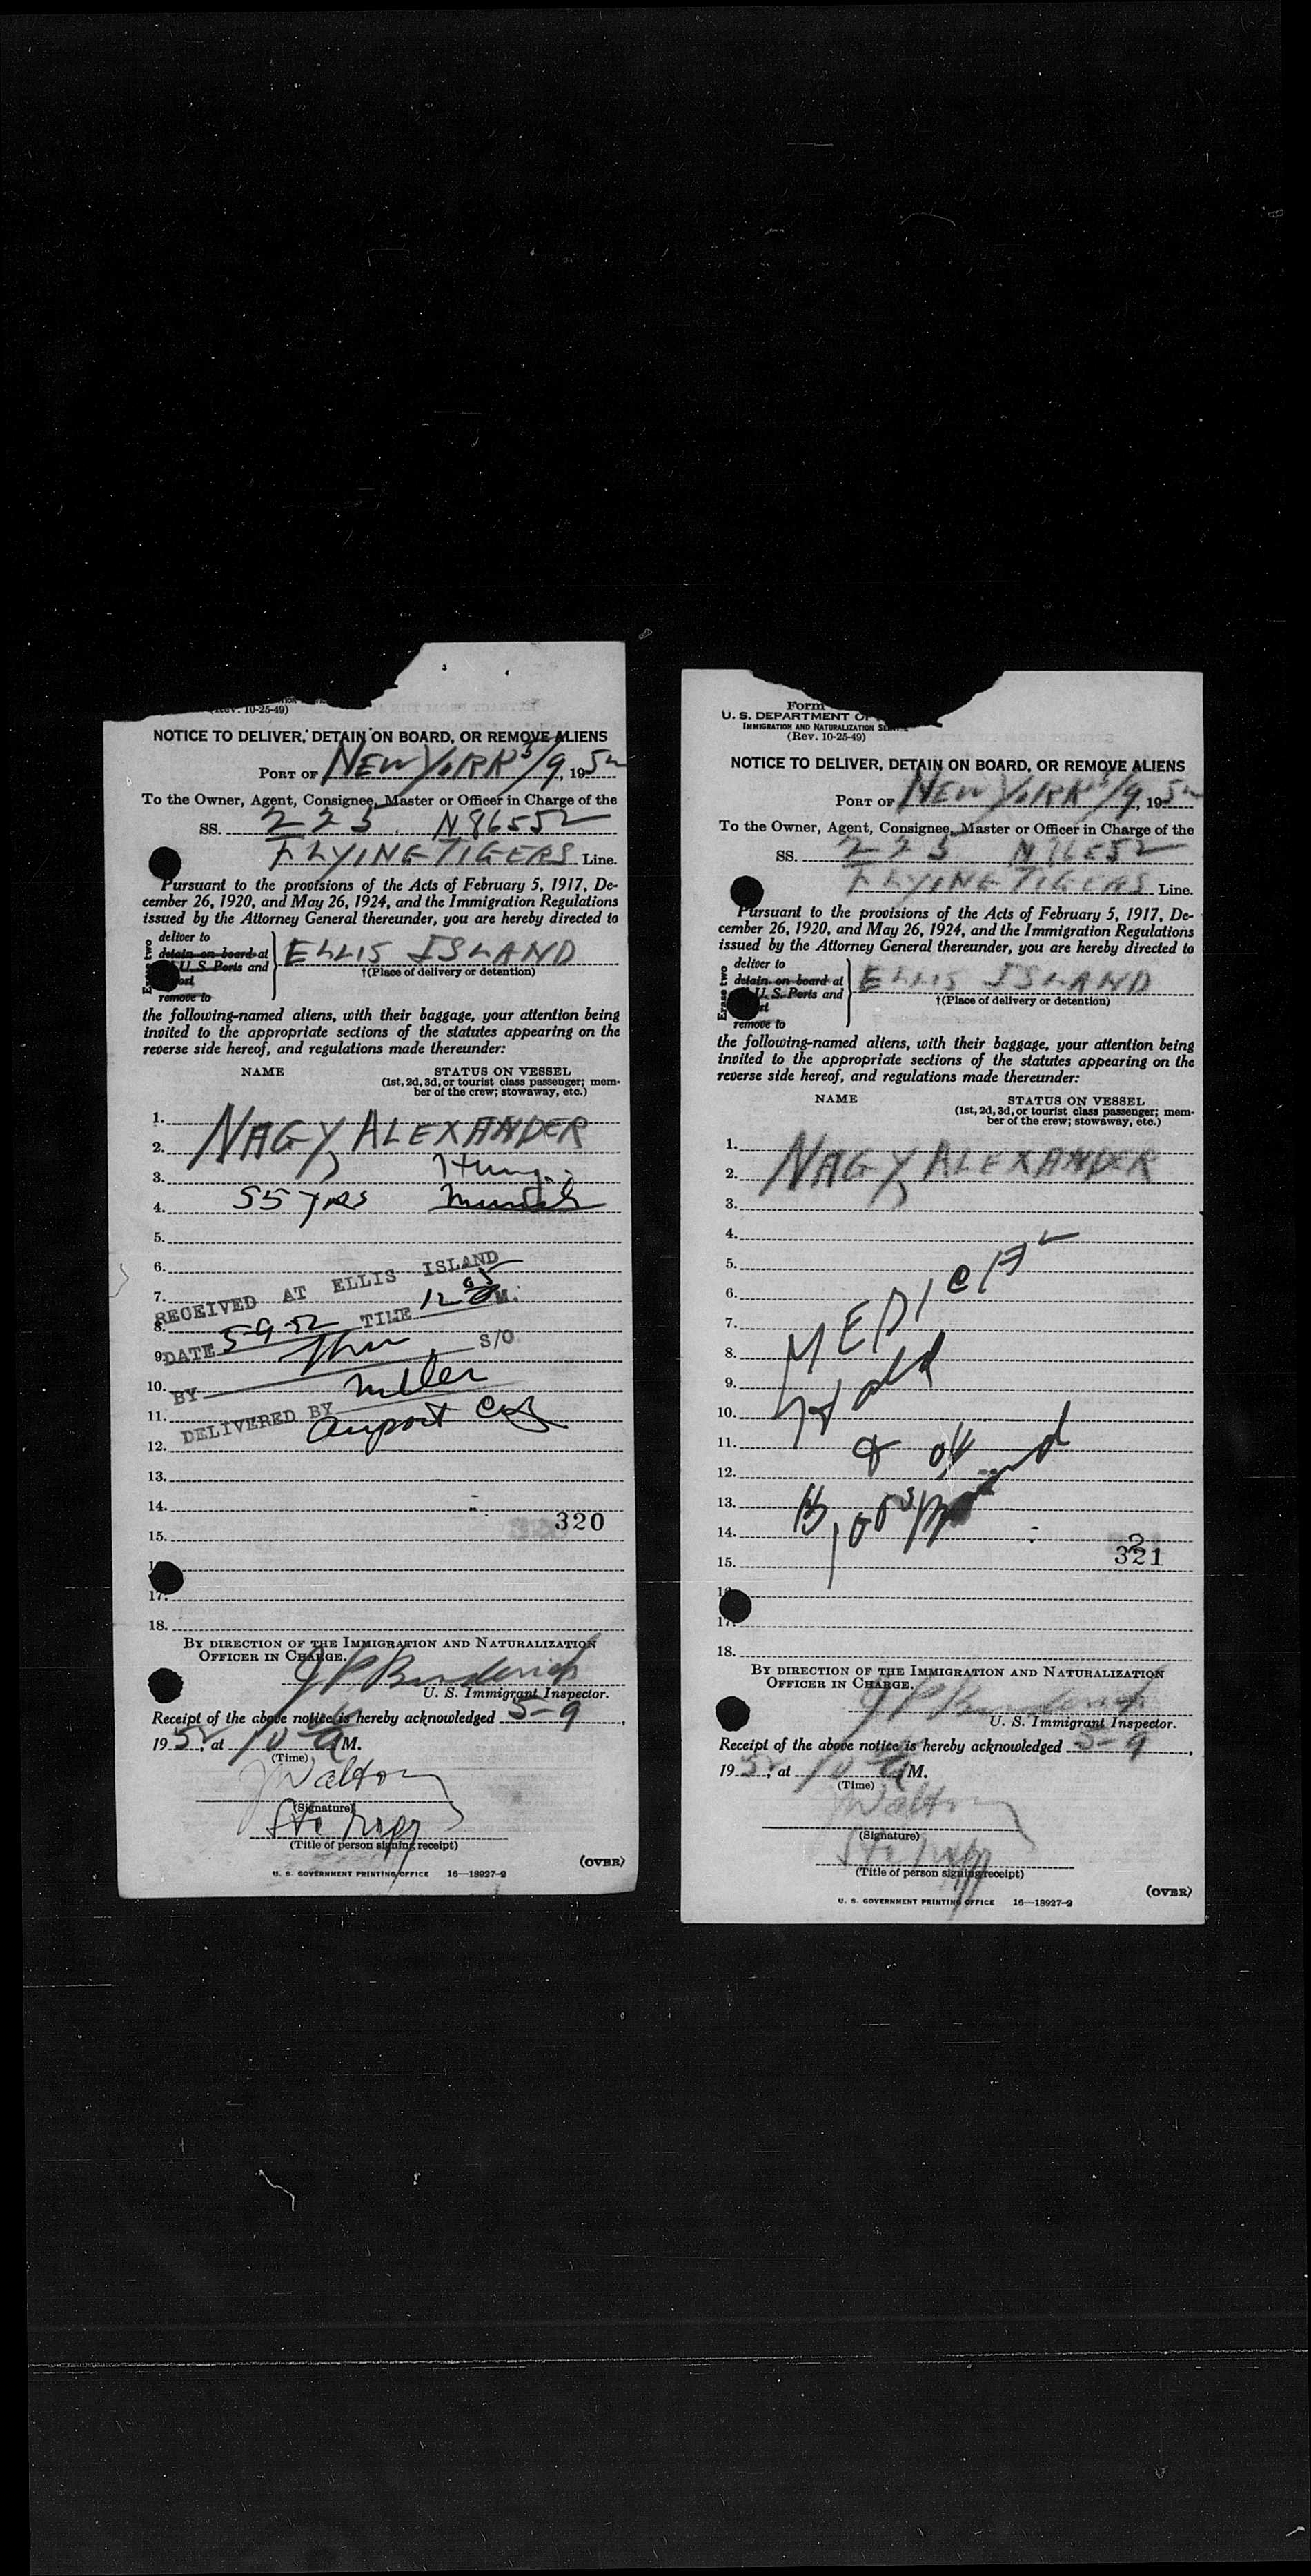 (Rev. 10-25-49)
NOTICE TO DELIVER, DETAIN ON BOARD, OR REMOVE ALIENS
PORT OF NEW YORK 5/9, 1952
To the Owner, Agent, Consignee, Master or Officer in Charge of the
SS. 223 N86552
FLYING TIGERS Line.
Pursuant to the provisions of the Acts of February 5, 1917, De-
cember 26, 1920, and May 26, 1924, and the Immigration Regulations
issued by the Attorney General thereunder, you are hereby directed to
deliver to
detain on board at
U. S. Ports and
remove to
ELLIS ISLAND
†(Place of delivery or detention)
the following-named aliens, with their baggage, your attention being
invited to the appropriate sections of the statutes appearing on the
reverse side hereof, and regulations made thereunder:
NAME STATUS ON VESSEL
(1st, 2d, 3d, or tourist class passenger; mem-
ber of the crew; stowaway, etc.)
1.
2. NAGY, ALEXANDER
3. Hung.
4. 55 yrs Munich
5.
6.
RECEIVED AT ELLIS ISLAND
7.
8.
DATE 5-9-52 TIME 12 05 M.
9.
BY S/O
10. Miller
11.
DELIVERED BY
12. airport
13.
14.
320
15.
17.
18.
BY DIRECTION OF THE IMMIGRATION AND NATURALIZATION
OFFICER IN CHARGE.
U. S. Immigrant Inspector.
Receipt of the above notice is hereby acknowledged 5-9,
1952, at 10 A M.
(Time)
J Walton
(Signature)
(Title of person signing receipt)
U. S. GOVERNMENT PRINTING OFFICE 16—18927-2
(OVER)
Form
U. S. DEPARTMENT OF
IMMIGRATION AND NATURALIZATION
(Rev. 10-25-49)
NOTICE TO DELIVER, DETAIN ON BOARD, OR REMOVE ALIENS
PORT OF NEW YORK 5/9, 1952
To the Owner, Agent, Consignee, Master or Officer in Charge of the
SS. 223 N86552
FLYING TIGERS Line.
Pursuant to the provisions of the Acts of February 5, 1917, De-
cember 26, 1920, and May 26, 1924, and the Immigration Regulations
issued by the Attorney General thereunder, you are hereby directed to
Erase two
deliver to
detain on board at
U. S. Ports and
remove to
ELLIS ISLAND
†(Place of delivery or detention)
the following-named aliens, with their baggage, your attention being
invited to the appropriate sections of the statutes appearing on the
reverse side hereof, and regulations made thereunder:
NAME STATUS ON VESSEL
(1st, 2d, 3d, or tourist class passenger; mem-
ber of the crew; stowaway, etc.)
1.
2. NAGY, ALEXANDER
3.
4.
5.
6.
7. MEDICAL
8.
9.
10.
11.
12.
13.
14.
321
15.
18.
BY DIRECTION OF THE IMMIGRATION AND NATURALIZATION
OFFICER IN CHARGE.
U. S. Immigrant Inspector.
Receipt of the above notice is hereby acknowledged 5-9,
1952, at 10 A M.
(Time)
J Walton
(Signature)
(Title of person signing receipt)
U. S. GOVERNMENT PRINTING OFFICE 16—18927-2
(OVER)